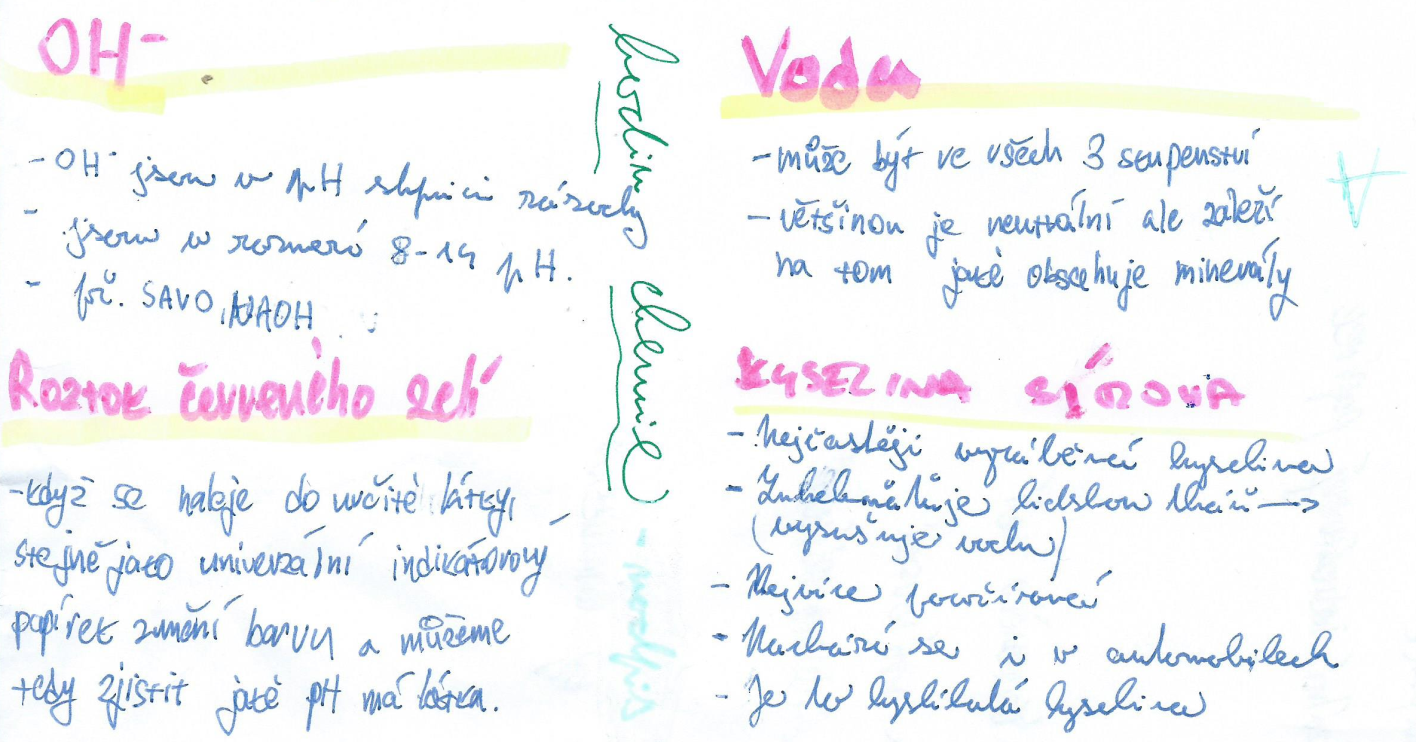 OH⁻
- OH⁻ jsou v pH stupnici zásady
- jsou v rozmezí 8-14 pH.
- př. SAVO, NAOH
Roztok červeného zelí
- když se naleje do určité látky,
stejně jako univerzální indikátorový
papírek změní barvu a můžeme
tedy zjistit jaké pH má látka.
hodin
chemie
Voda
- může být ve všech 3 skupenství
- většinou je neutrální ale záleží
na tom jaké obsahuje minerály
KYSELINA SÍROVÁ
- Nejčastěji vyráběná kyselina
- lidskou tkáň →
(vysušuje vodu)
- Nejvíce
- Nachází se i v automobilech
- Je to kyslíkatá kyselina